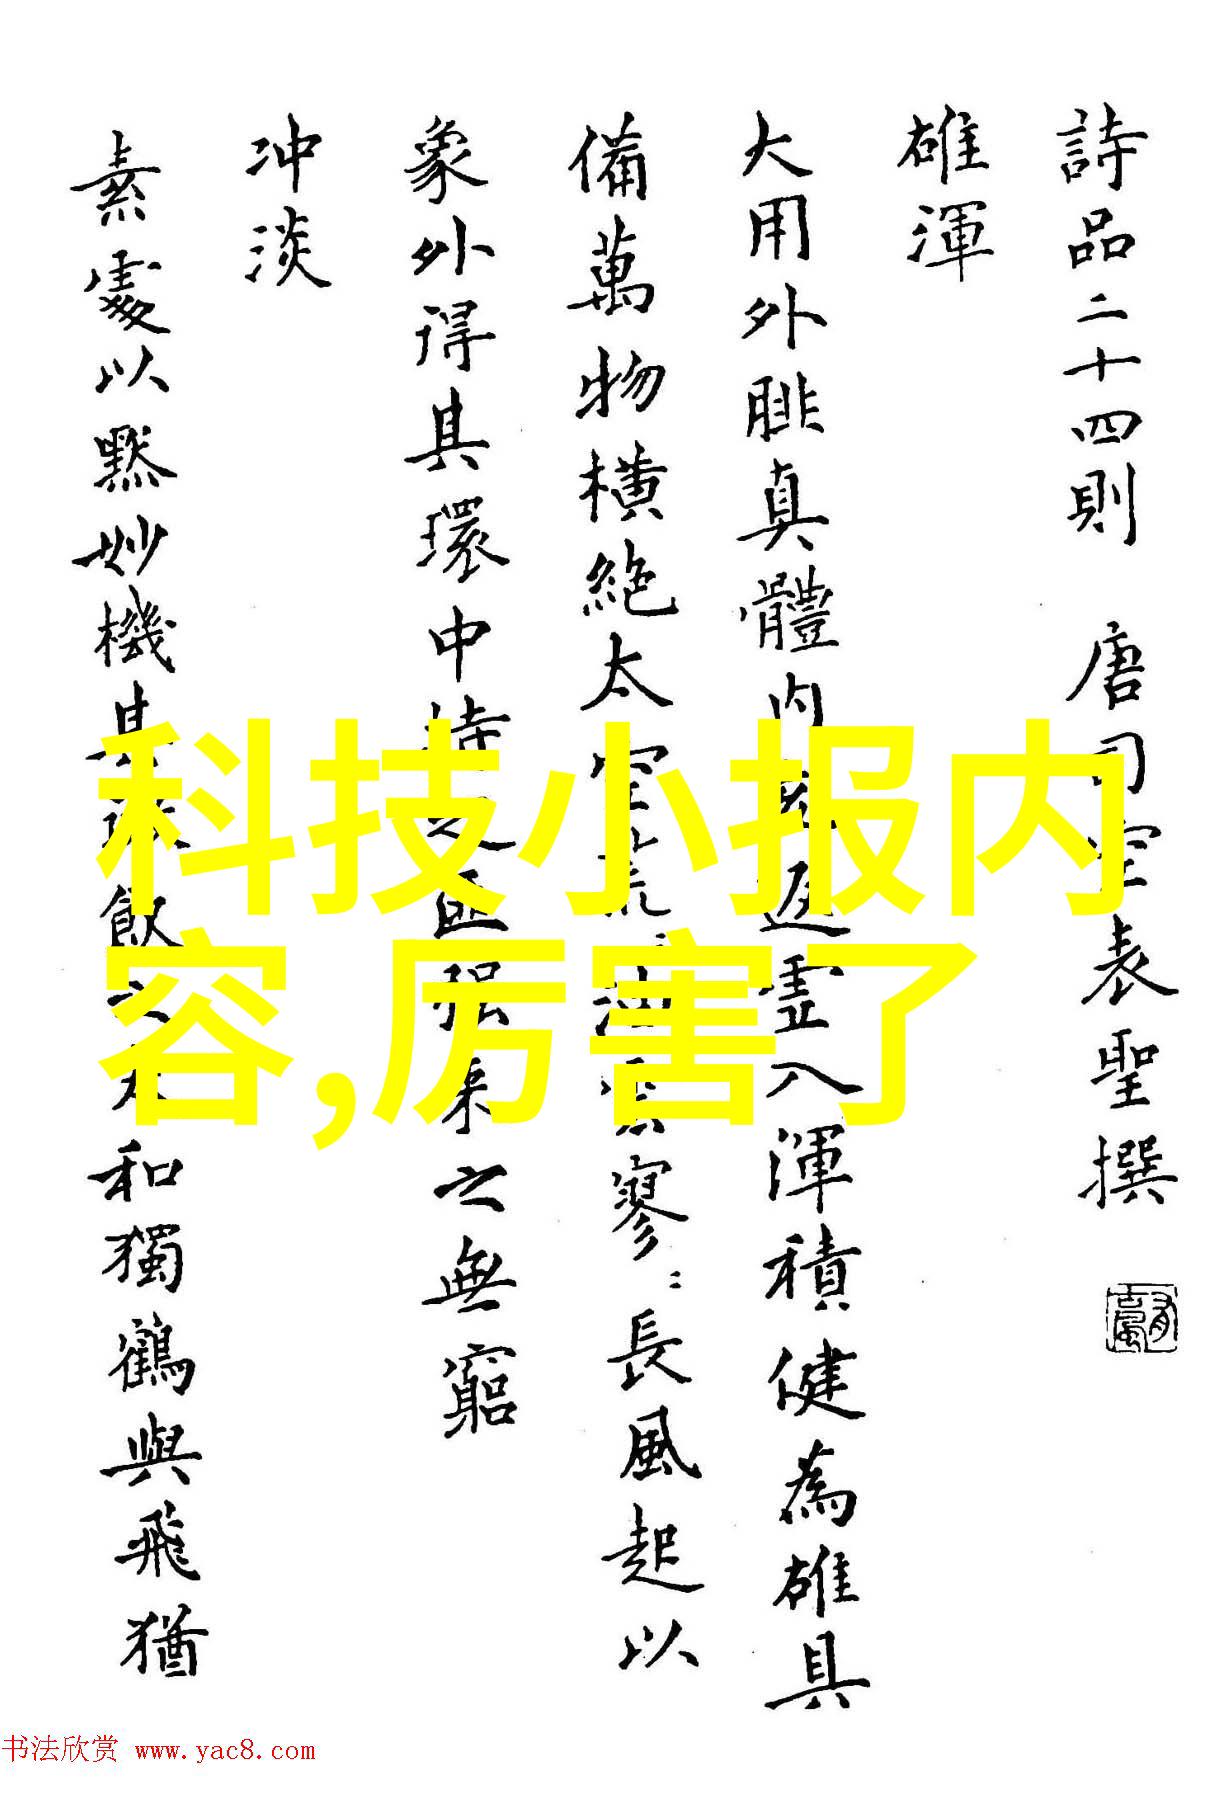 詩品二十四則 唐司空表聖撰
雄渾
大用外腓真體内充返虛入渾積健為雄具
備萬物横絶太空荒〻油雲寥〻長風起以
象外得其環中持之匪强来之無窮
冲淡
素處以黙妙機其微飲之太和獨鶴與飛猶
科技小报内
容,厉害了
书法欣赏 www.yac8.com